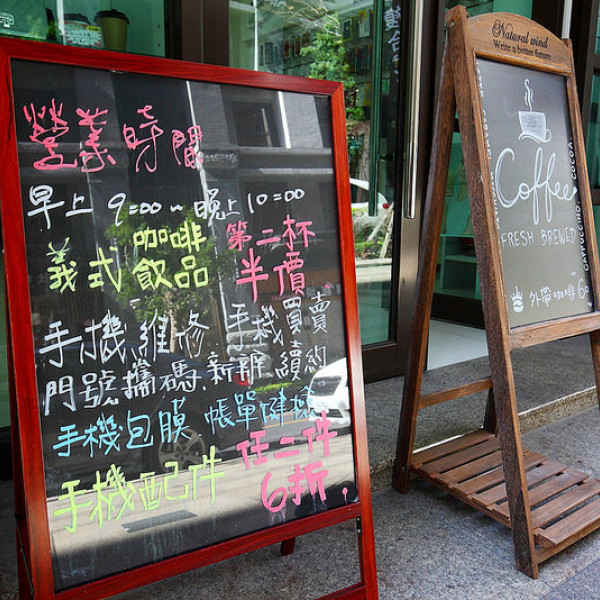 營業時間
早上 9:00 ~ 晚上 10:00
義式 咖啡飲品 第二杯半價
手機維修 手機買賣
門號攜碼.新辦.續約
手機包膜 帳單健檢
手機配件 任二件6折,
Natural wind
Write a better future
Coffee
FRESH BREWED
CAPPUCCINO COCOA
外帶咖啡 60